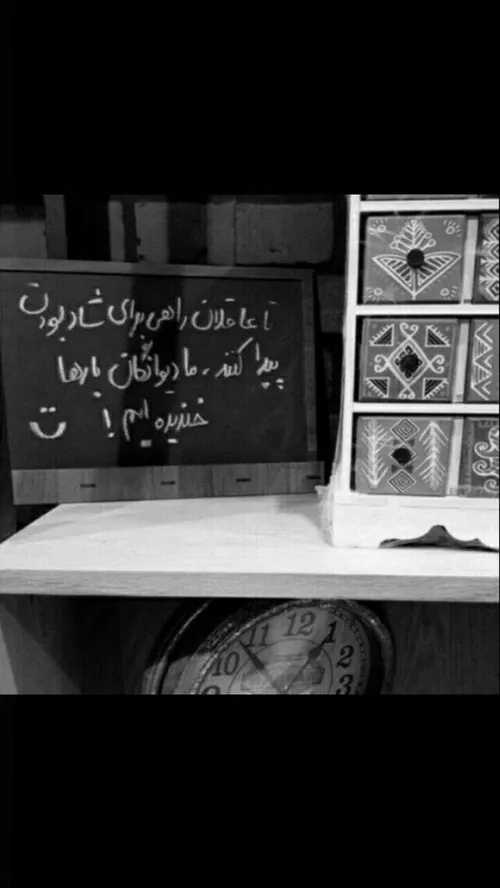 تا عاقلان راهی برای شاد بودن
پیدا کنند، ما دیوانگان بارها
خندیده ایم!
11 12 1
10 2
9 3